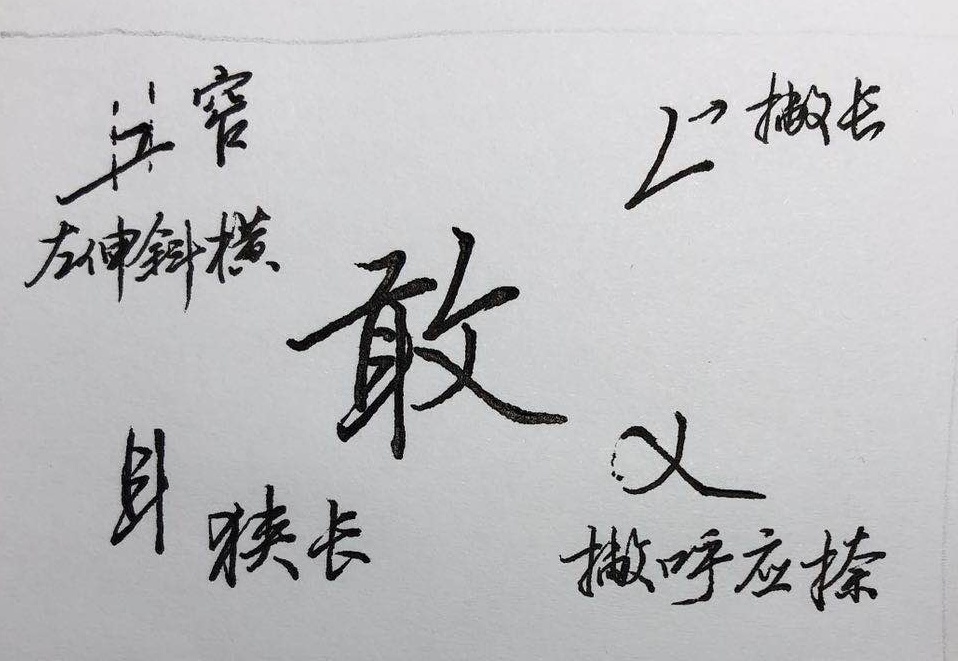 窄
撇长
左伸斜横
敢
狭长
撇呼应捺